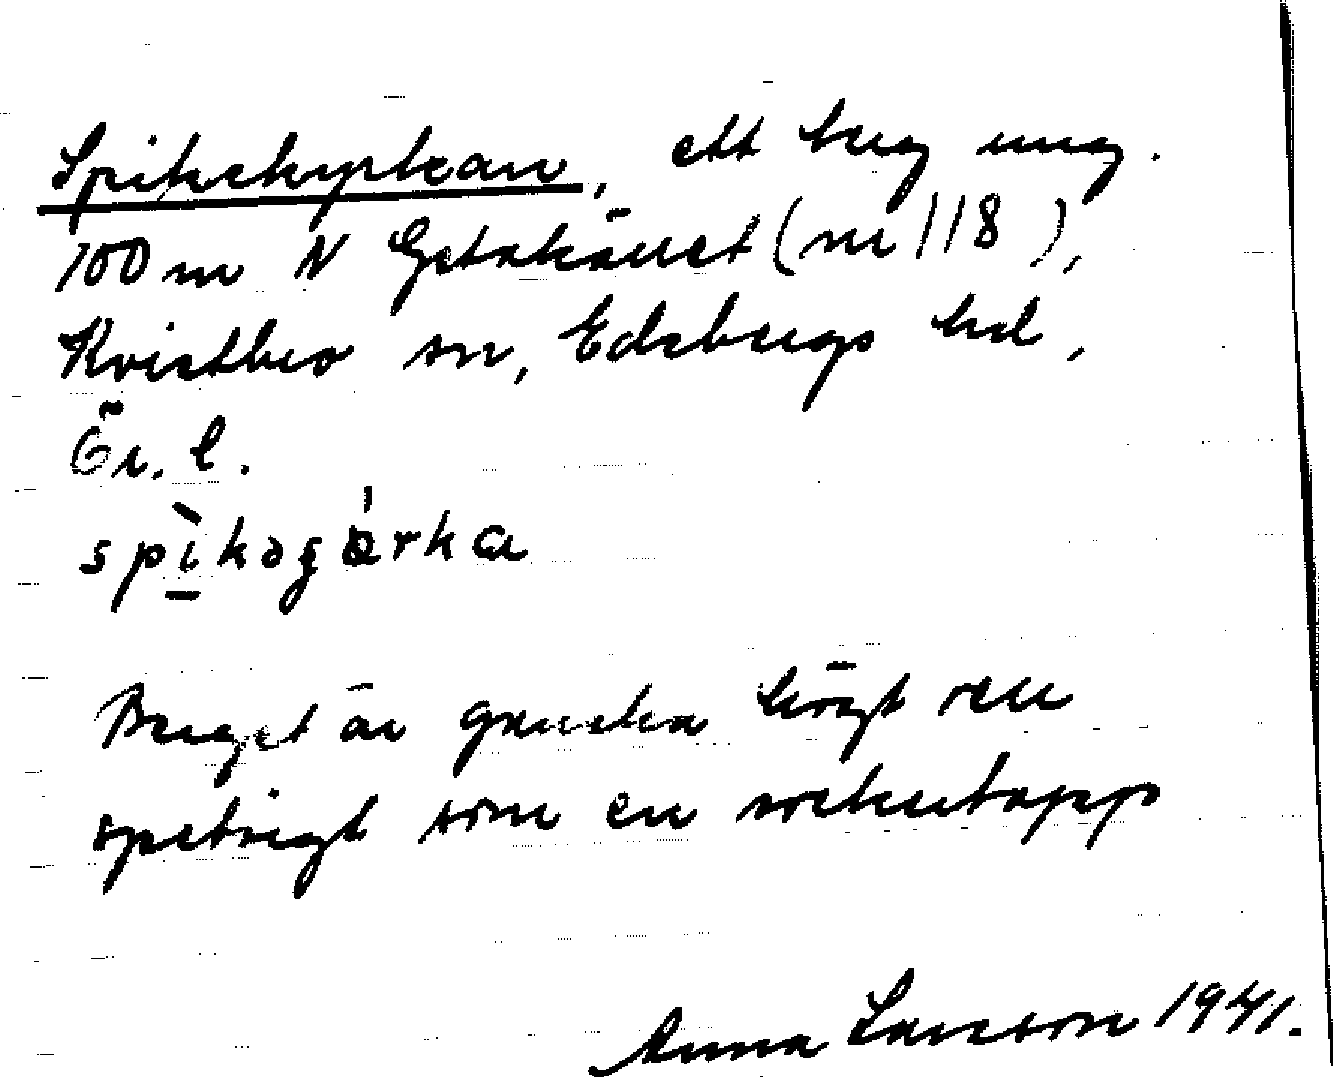 Spikekyrkan, ett berg ung.
100 m N Getakärret (nr 118),
Kvistbro sn, Edsbergs hd,
Ör. l.
Berget är ganska högt och
spetsigt som en sockertopp
Anna Larsson 1941.